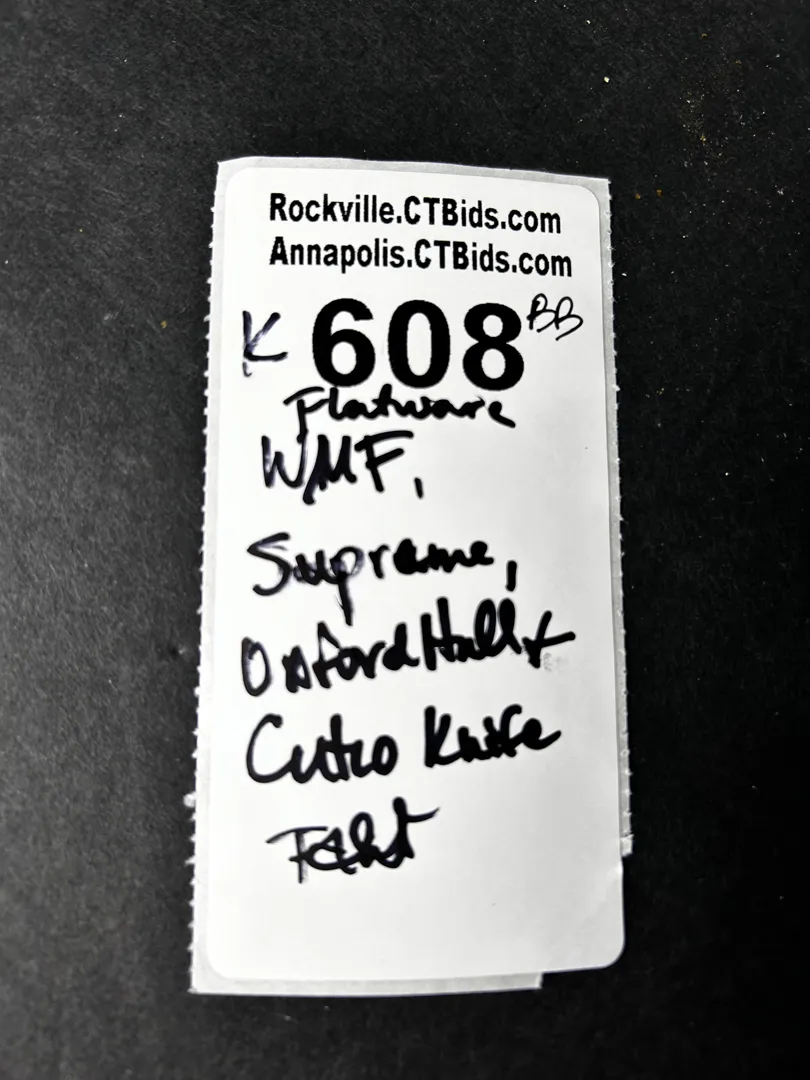 Rockville.CTBids.com
Annapolis.CTBids.com
K 608 BB
Flatware
WMF,
Supreme,
Oxford Hall +
Cutco Knife